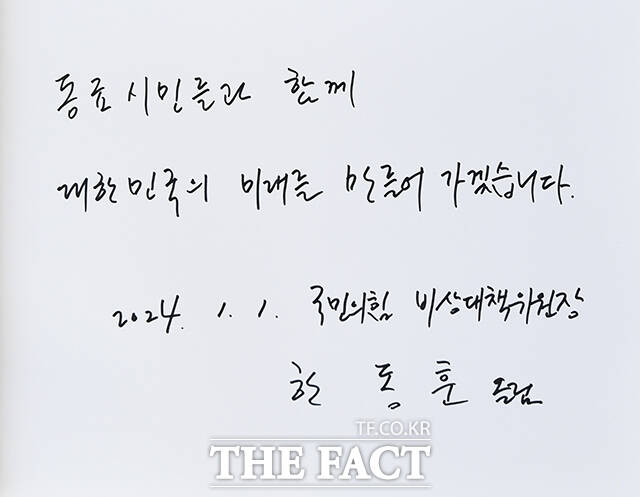 동료시민들과 함께
대한민국의 미래를 만들어 가겠습니다.
2024. 1. 1. 국민의힘 비상대책위원장
한 동 훈 올림
TF.CO.KR
THE FACT